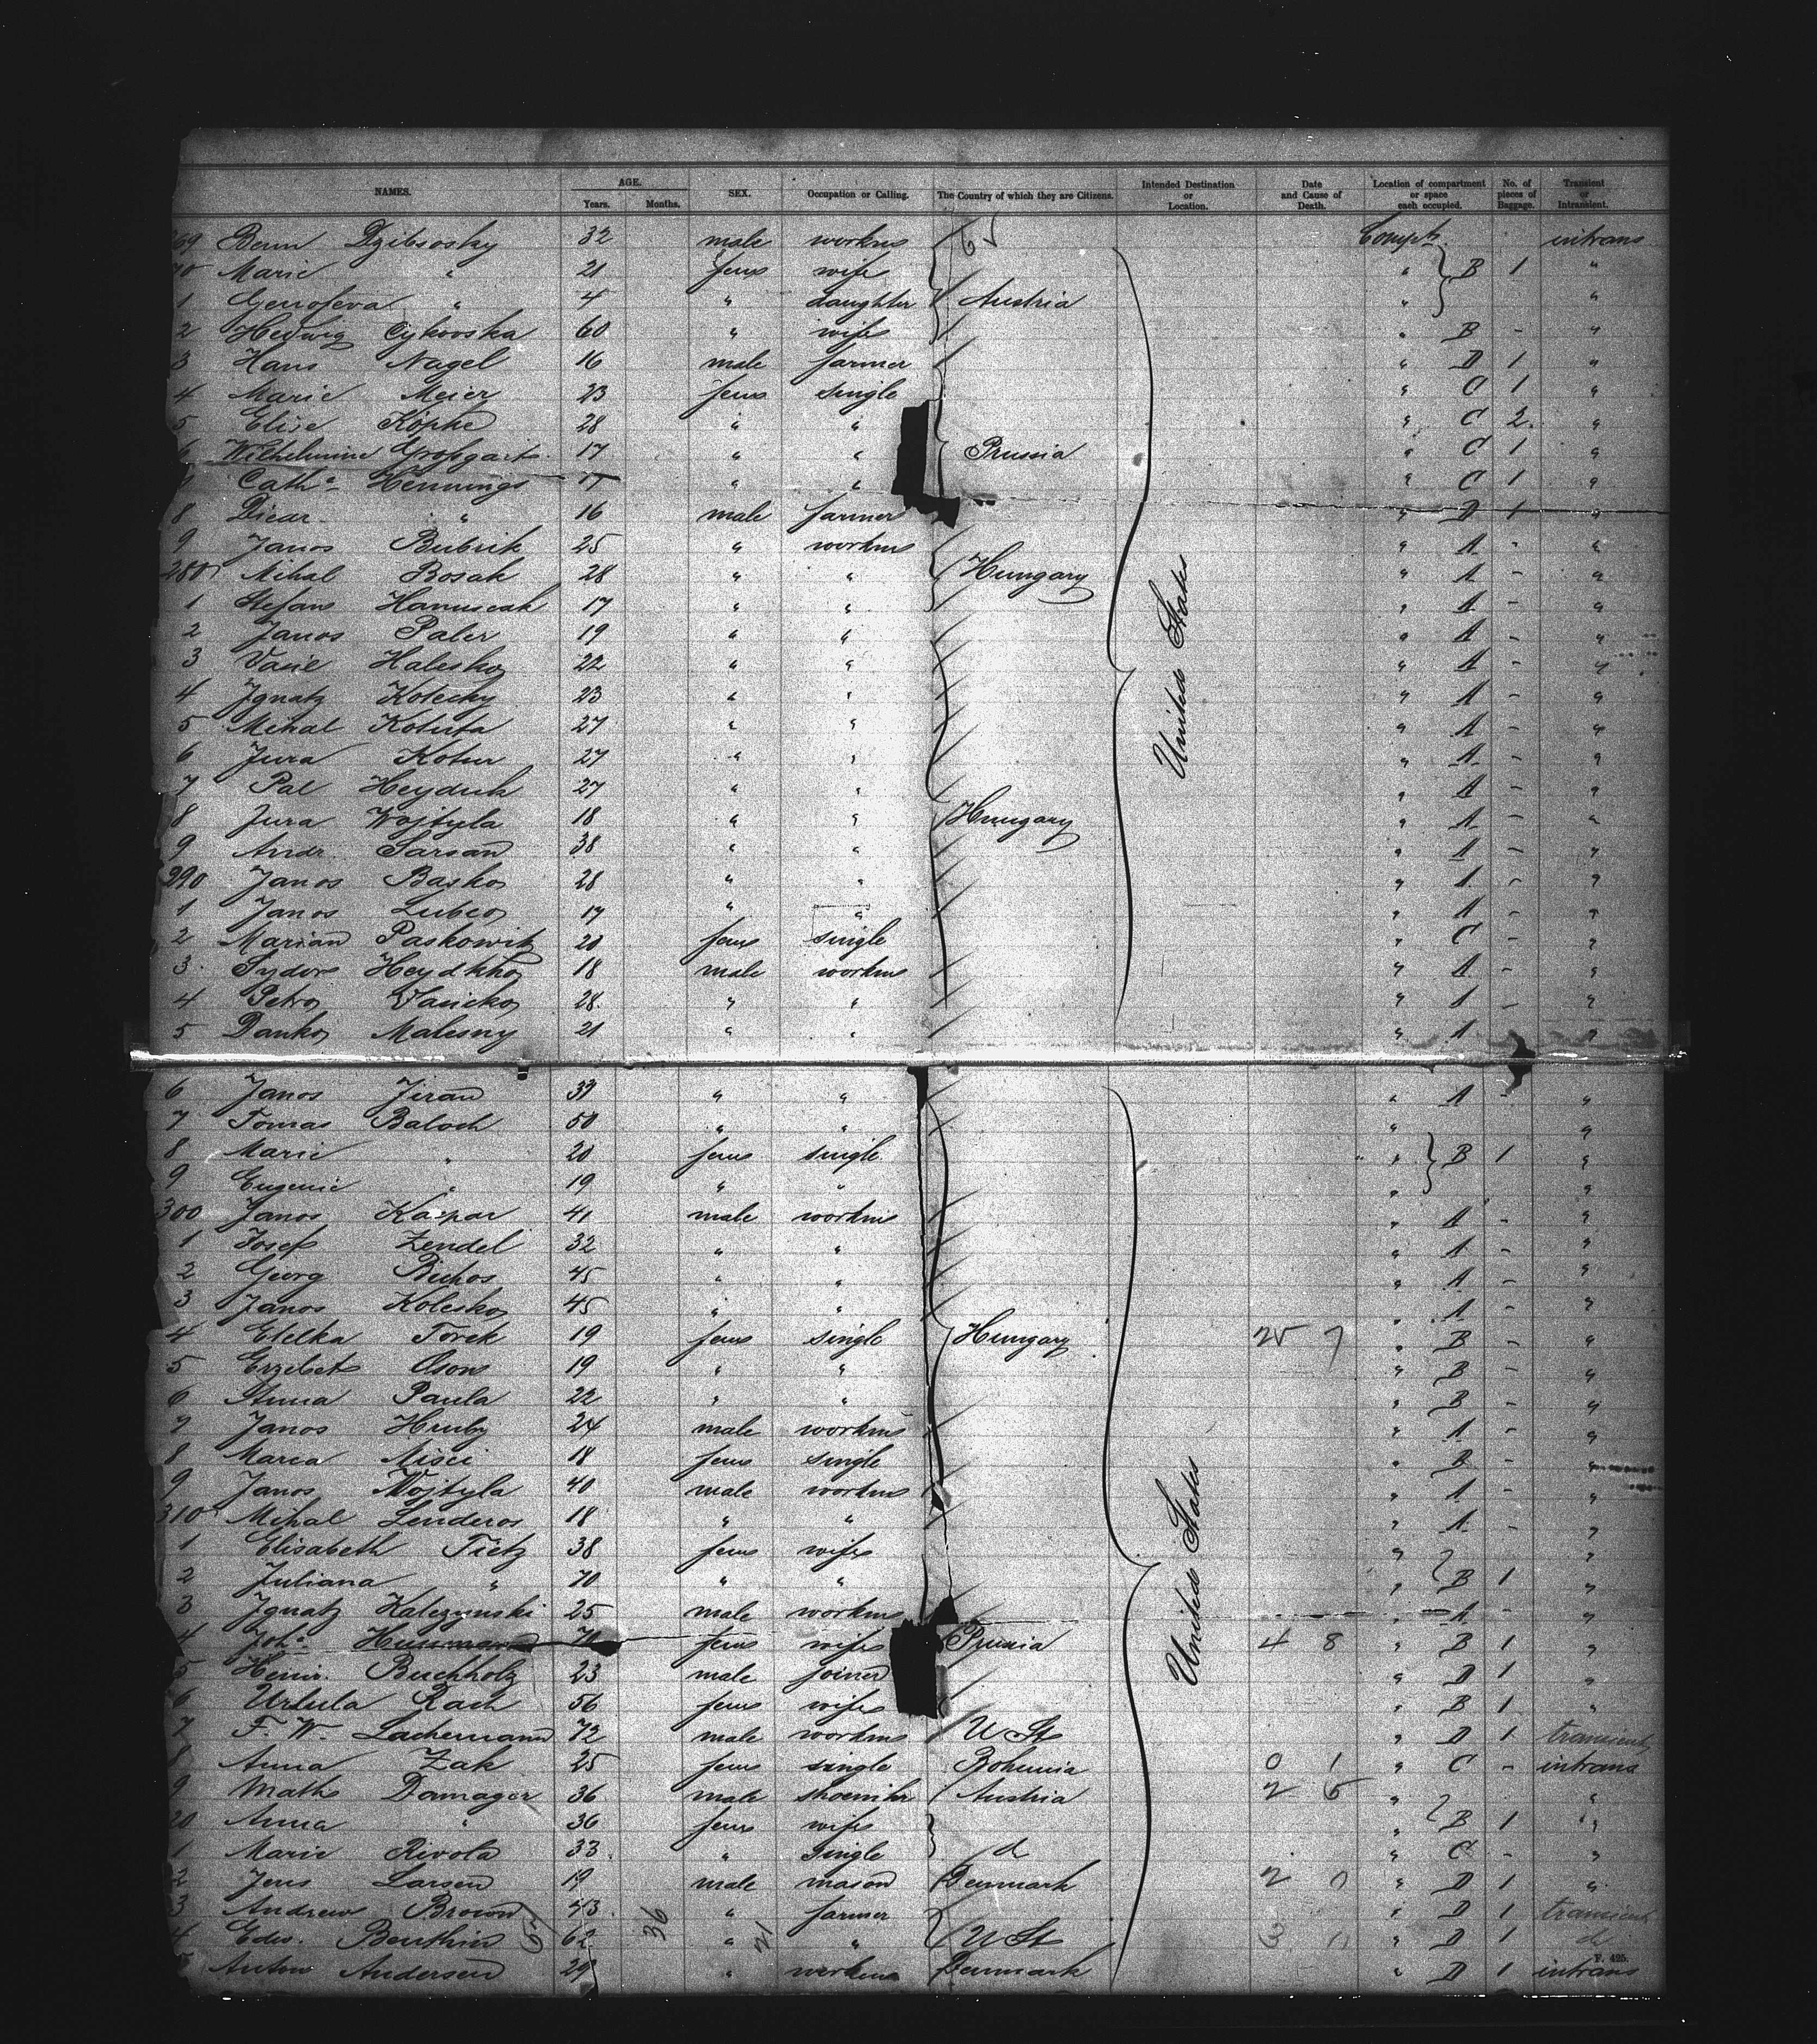 NAMES. AGE. Years. Months. SEX. Occupation or Calling. The Country of which they are Citizens. Intended Destination or Location. Date and Cause of Death. Location of compartment or space each occupied. No. of pieces of Baggage. Transient or Intransient.
69 Dzibsosky 32 male workm Compt. intrans
70 Marie " 21 fem wife " B 1 "
1 Genofeva " 4 " daughter Austria " "
2 Hedwig Cykowska 60 " wife " B - "
3 Hans Nagel 16 male farmer " D 1 "
4 Marie Meier 23 fem single " C 1 "
5 Elise Köpke 28 " " " C 2. "
6 Wilhelmine 17 " " Prussia " C 1 "
Cath. Hennings " " " C 1 "
8 " 16 male farmer " D 1 "
9 Janos Bubrik 25 " workm " A - "
280 Mihal Bosak 28 " " Hungary " A - "
1 Stefan Hanuscak 17 " " " A - "
2 Janos Paler 19 " " " A - "
3 Vasil Halesko 22 " " " A - "
4 Ignatz Kotecky 23 " " " A - "
5 Mihal Kotuta 27 " " " A - "
6 Jura Kotur 27 " " " A - "
7 Pal Heyduk 27 " " " A - "
8 Jura Wojtyla 18 " " Hungary " A - "
9 Andr. Sarsan 38 " " " A - "
290 Janos Basko 28 " " " A - "
1 Janos Lubco 17 " " " A - "
2 Marian Paskowitz 20 fem single " C - "
3. Sydor Heydkho 18 male workm " A - "
4 Petro Vasicko 28. " " " A - "
5 Danko Malesny 21 " " " A - "
United States
6 Janos Jiran 39 " " " A - "
7 Tomas Baloch 50 " " " "
8 Marie " 20 fem single " B 1 "
9 Eugenie " 19 " " " "
300 Janos Kaspar 41 male workm " A - "
1 Josef Zendel 32 " " " A - "
2 Georg Bichos 45 " " " A - "
3 Janos Kolesko 45 " " " A - "
4 Etelka Torek 19 fem single Hungary 25 7 " B - "
5 Erzebet Oson 19 " " " B - "
6 Anna Paula 22 " " " B - "
7 Janos Hruby 24 male workm " A - "
8 Maria Misci 18 fem single " B - "
9 Janos Wojtyla 40 male workm " A - "
310 Mihal Lenderos 18 " " " A - "
1 Elisabeth Tietz 38 fem wife " "
2 Juliana " 70 " " " B 1 "
3 Ignatz Kalezynski 25 male workm " A - "
4 Joh. 70 fem wife Prussia 4 8 " B 1 "
5 Heinr. Buchholz 23 male joiner " D 1 "
6 Ursula Rach 56 fem wife " B 1 "
7 F. W. Lachemann 72 male workm U St " D 1 transient
8 Anna Zak 25 fem single Bohemia 0 1 " C - intrans
9 Math. Damager 36 male shoemkr Austria 2 5 " "
20 Anna " 36 fem wife " B 1 "
1 Marie Rivola 33. " single d " C - "
2 Jens Larsen 19 male mason Denmark 2 0 " D 1 "
3 Andrew Brown 43. " farmer " D 1 transient
4 Edw. Benthin 62 36 " 21 " U St 3 " D 1 d
5 Anton Andersen 29 " workm Denmark " D 1 intrans
United States
F. 425.